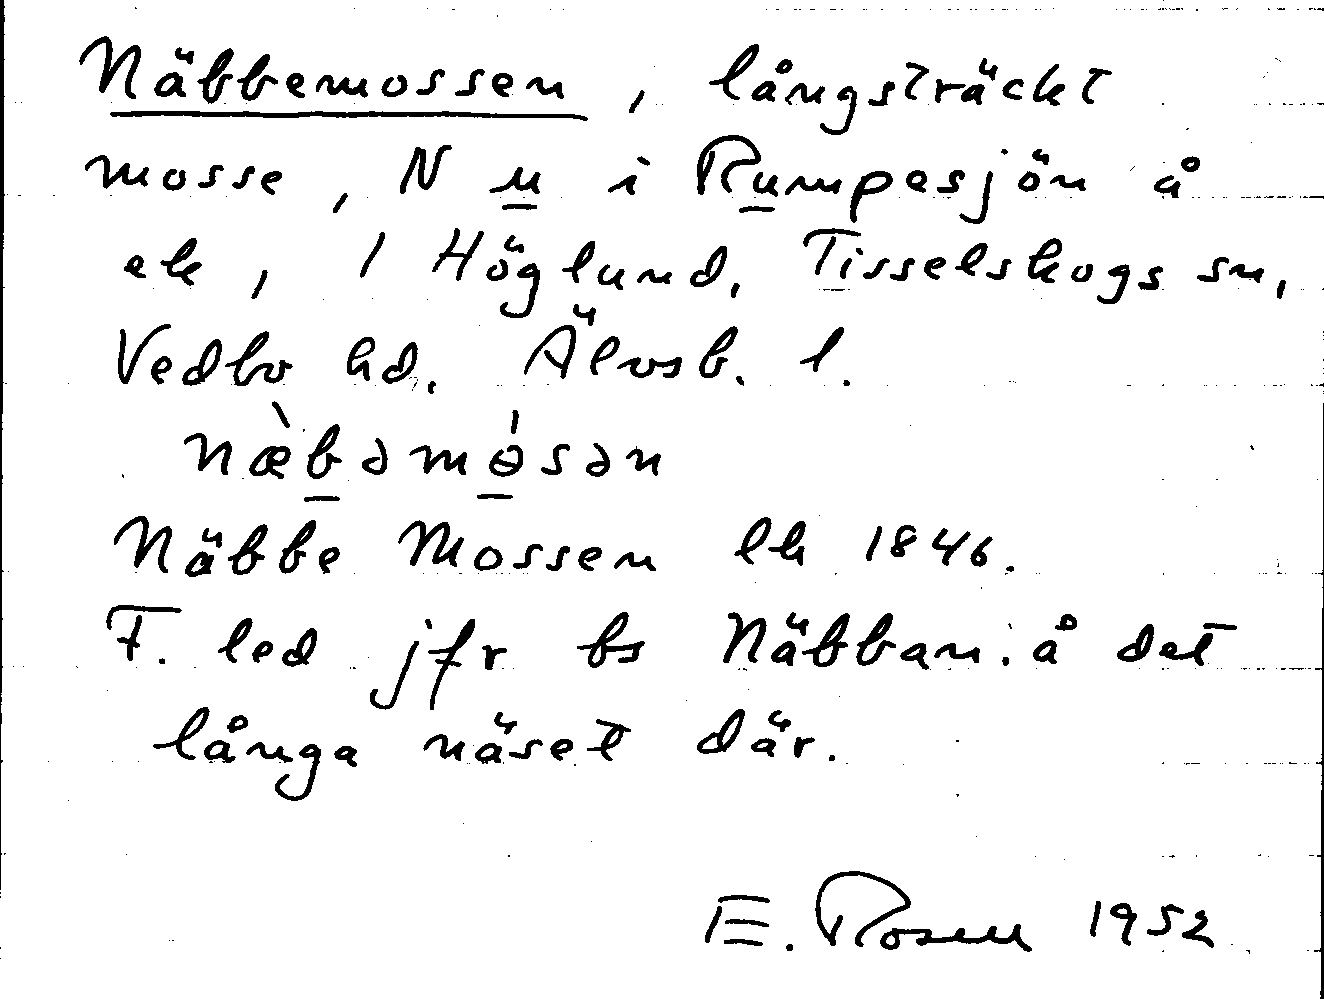 Näbbemossen, långsträckt
mosse, N u i Rumpesjön å
ek, 1 Höglund, Tisselskogs sn,
Vedbo hd. Älvsb. l.
næ̀bəmɵ́sən
Näbbe Mossen lk 1846.
F. led jfr bs Näbban. å det
långa näset där.
E. Rosen 1952